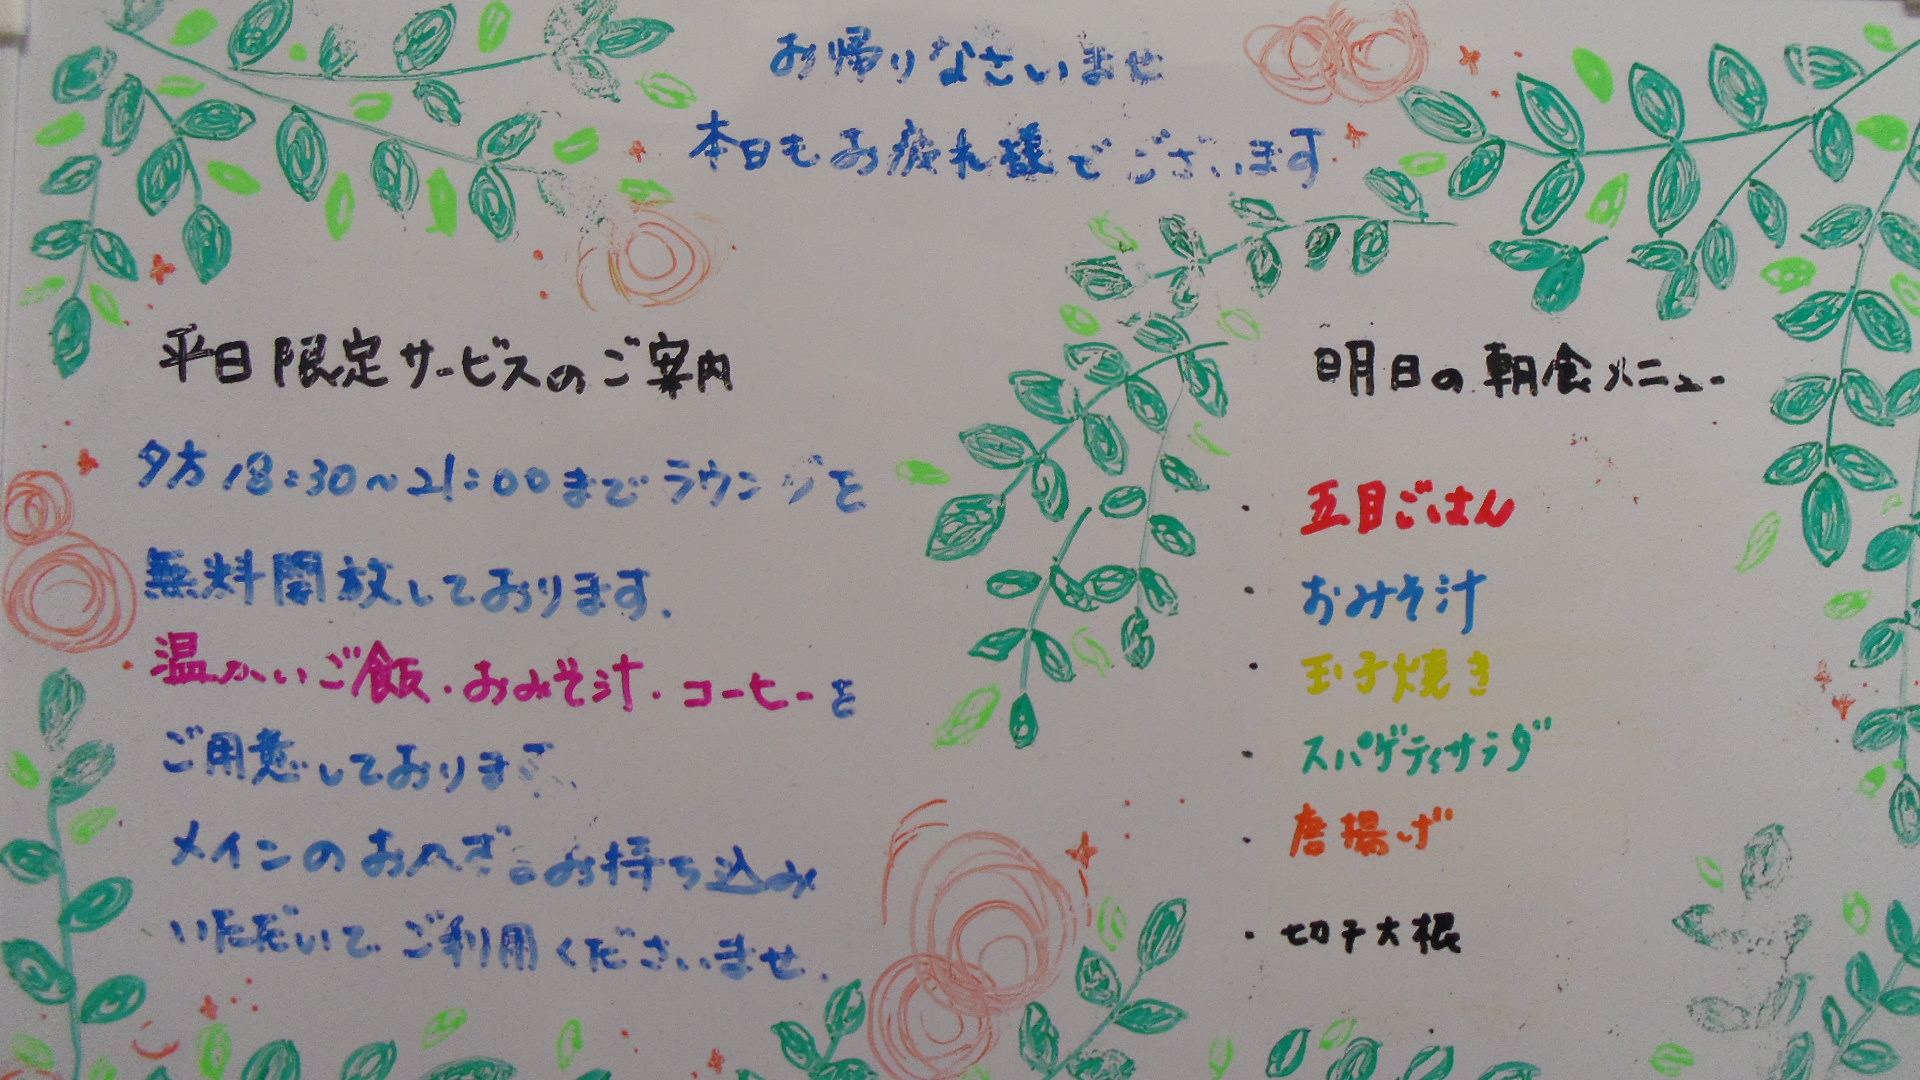 お帰りなさいませ
本日もお疲れ様でございます
平日限定サービスのご案内
夕方18:30~21:00までラウンジを
無料開放しております.
温かいご飯・おみそ汁・コーヒーを
ご用意しております.
メインのおかずはお持ち込み
いただいてご利用くださいませ.
明日の朝食メニュー
・五目ごはん
・おみそ汁
・玉子焼き
・スパゲティサラダ
・唐揚げ
・切干大根